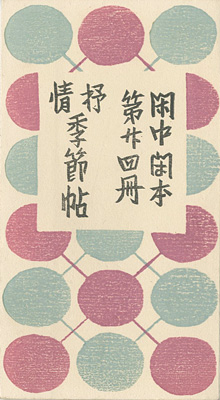 閑中閑本
第廿四冊
抒情季節帖